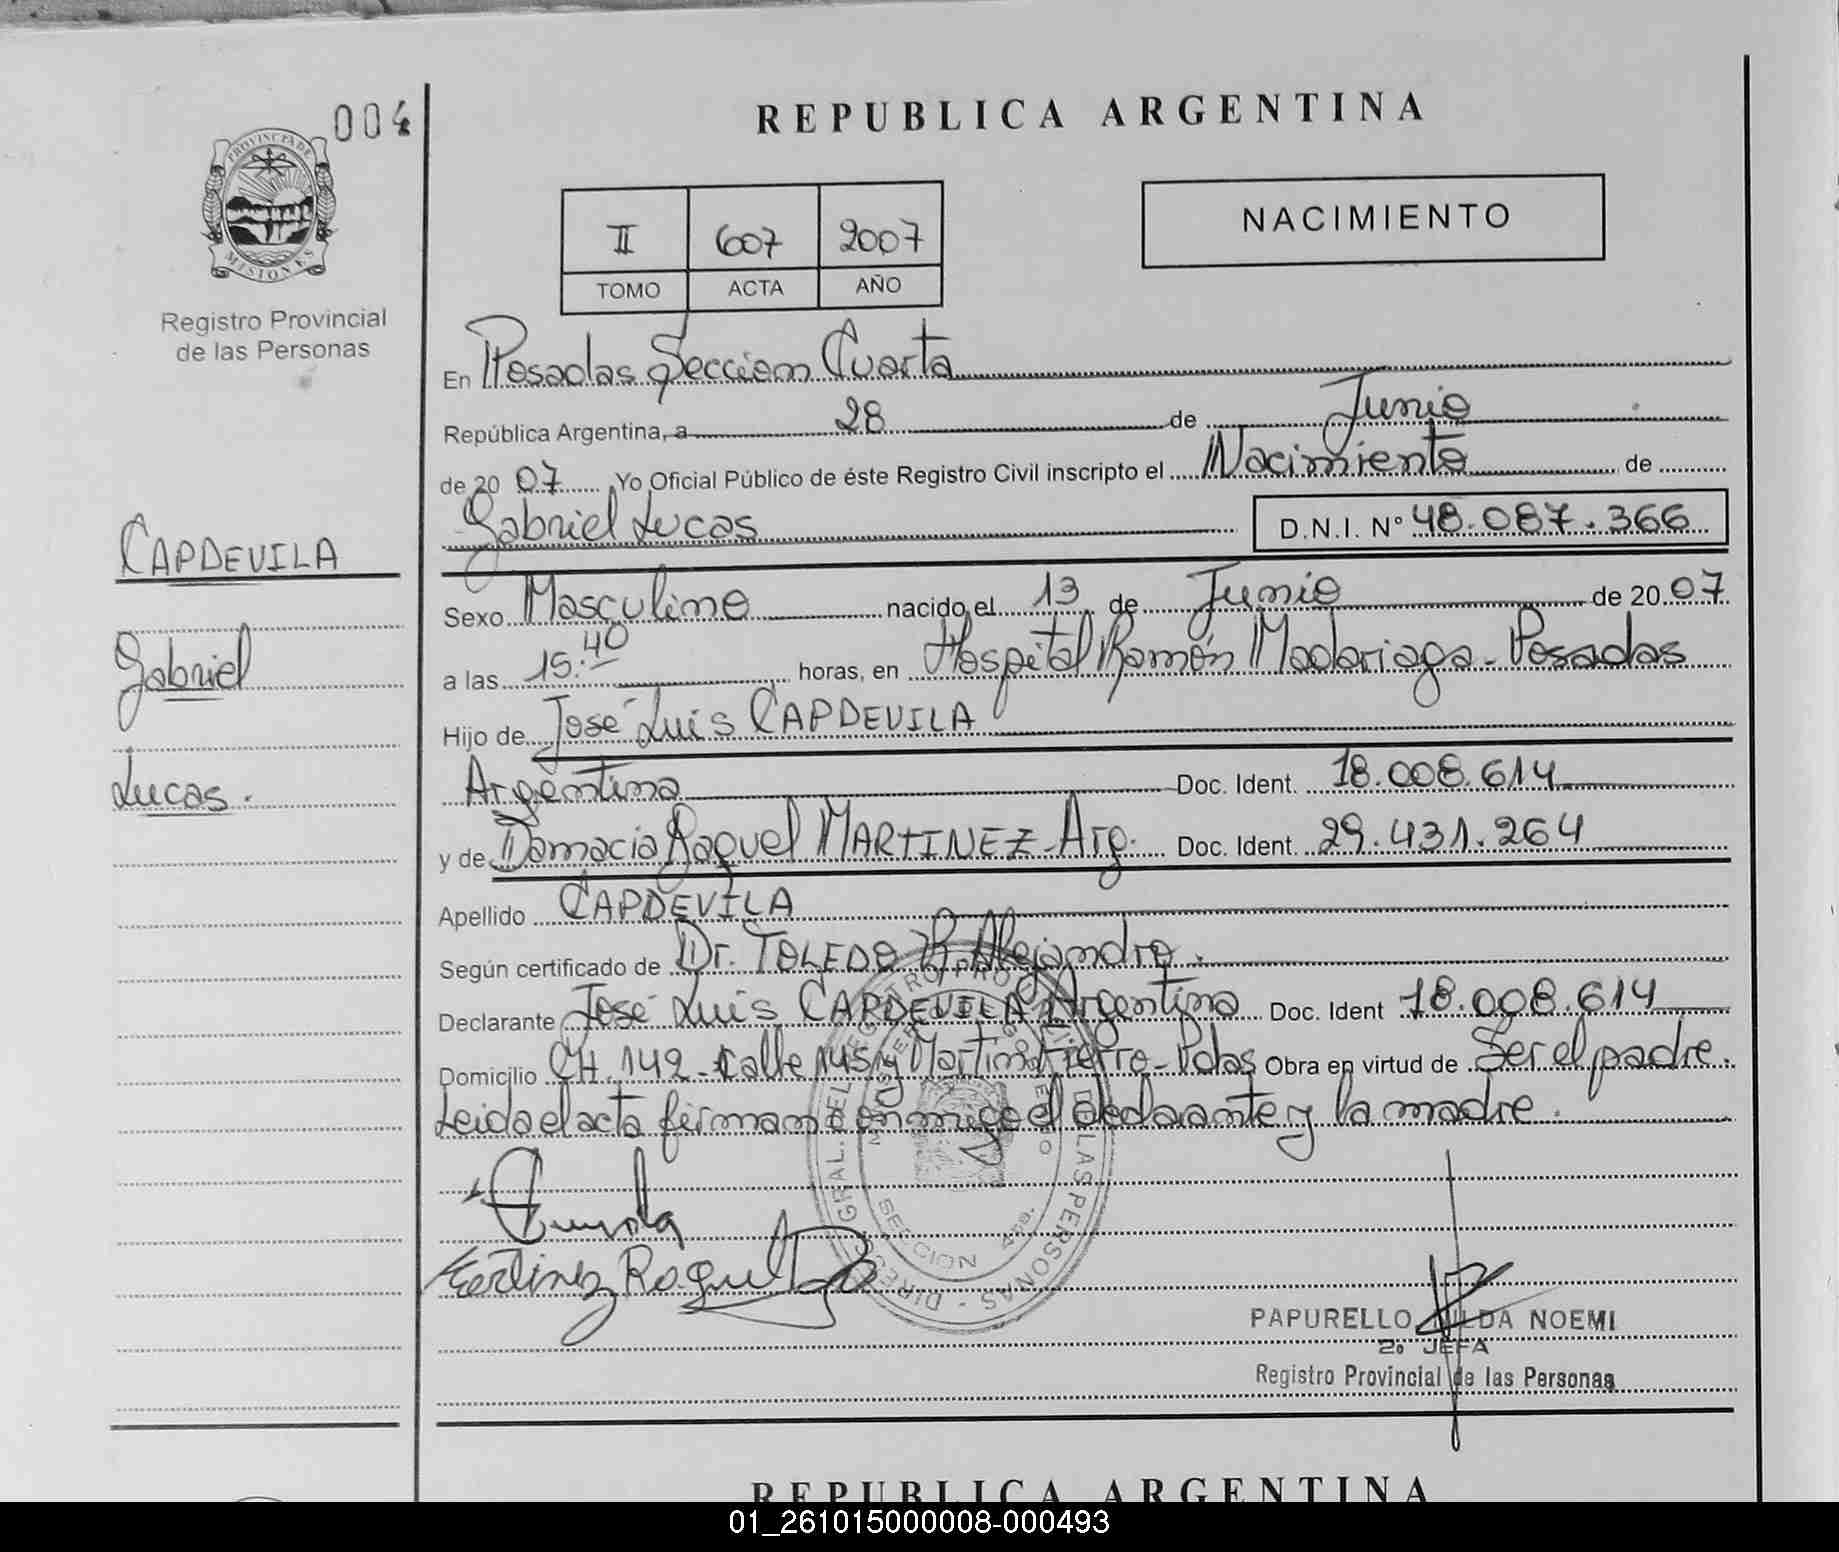 004
PROVINCIA DE
MISIONES
Registro Provincial
de las Personas
CAPDEVILA
Gabriel
Lucas.
REPUBLICA ARGENTINA
II 607 2007
TOMO ACTA AÑO
NACIMIENTO
En Posadas Seccion Cuarta
República Argentina, a 28 de Junio
de 20 07 Yo Oficial Público de éste Registro Civil inscripto el Nacimiento de
Gabriel Lucas D.N.I. N° 48.087.366
Sexo Masculino nacido el 13 de Junio de 20 07
a las 15:40 horas, en Hospital Ramón Madariaga - Posadas
Hijo de José Luis CAPDEVILA
Argentina Doc. Ident. 18.008.614
y de Damacia Raquel MARTINEZ - Arg. Doc. Ident. 29.431.264
Apellido CAPDEVILA
Según certificado de Dr. TOLEDO Alejandro.
Declarante José Luis CAPDEVILA Argentina Doc. Ident 18.008.614
Domicilio CH. 142 - Calle 145 y Martin Fierro - Pdas Obra en virtud de Ser el padre.
Leida el acta firman conmigo el declarante y la madre.
Martinez Raquel
SECCION 4ta.
PAPURELLO ILDA NOEMI
2º JEFA
Registro Provincial de las Personas
REPUBLICA ARGENTINA
01_261015000008-000493